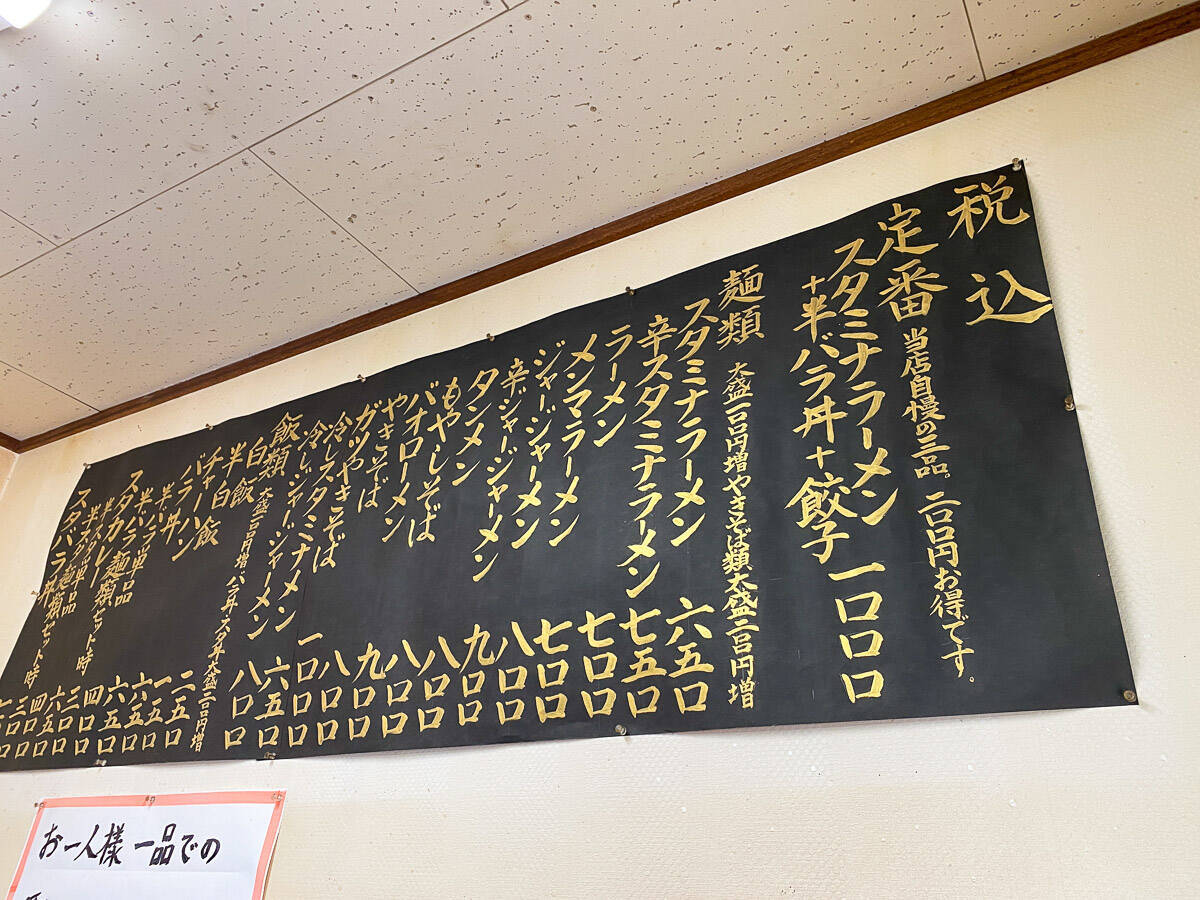 税込
定番 当店自慢の三品。二〇〇円お得です。
スタミナラーメン
+半バラ丼+餃子 一〇〇〇
麺類 大盛一〇〇円増やきそば類大盛二〇〇円増
スタミナラーメン 六五〇
辛スタミナラーメン 七五〇
ラーメン 七〇〇
メンマラーメン 七〇〇
ジャージャーメン 八〇〇
辛ジャージャーメン 九〇〇
タンメン 八〇〇
もやしそば 八〇〇
バオローメン 九〇〇
やきそば 八〇〇
ガツやきそば 一〇〇〇
冷しスタミナメン 六五〇
冷しジャージャーメン 八〇〇
飯類 大盛一〇〇円増 バラ丼スタ丼大盛二〇〇円増
白飯 二五〇
半白飯 一五〇
チャーハン 六五〇
バラ丼 六五〇
半バラ単品 四〇〇
半バラ麺類セット時 三〇〇
スタカレー 六五〇
お一人様 一品での